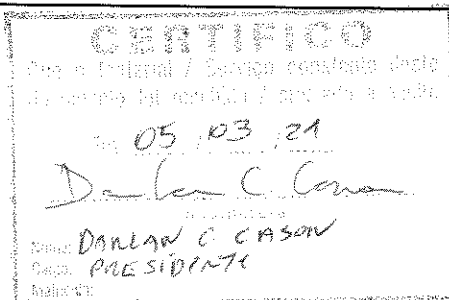 CERTIFICO
Que o Material / Serviço constante deste
documento foi recebido / prestado e aceito.
Em 05 / 03 / 21
Darlan C Cason
Assinatura
Nome: DARLAN C CASON
Cargo: PRESIDENTE